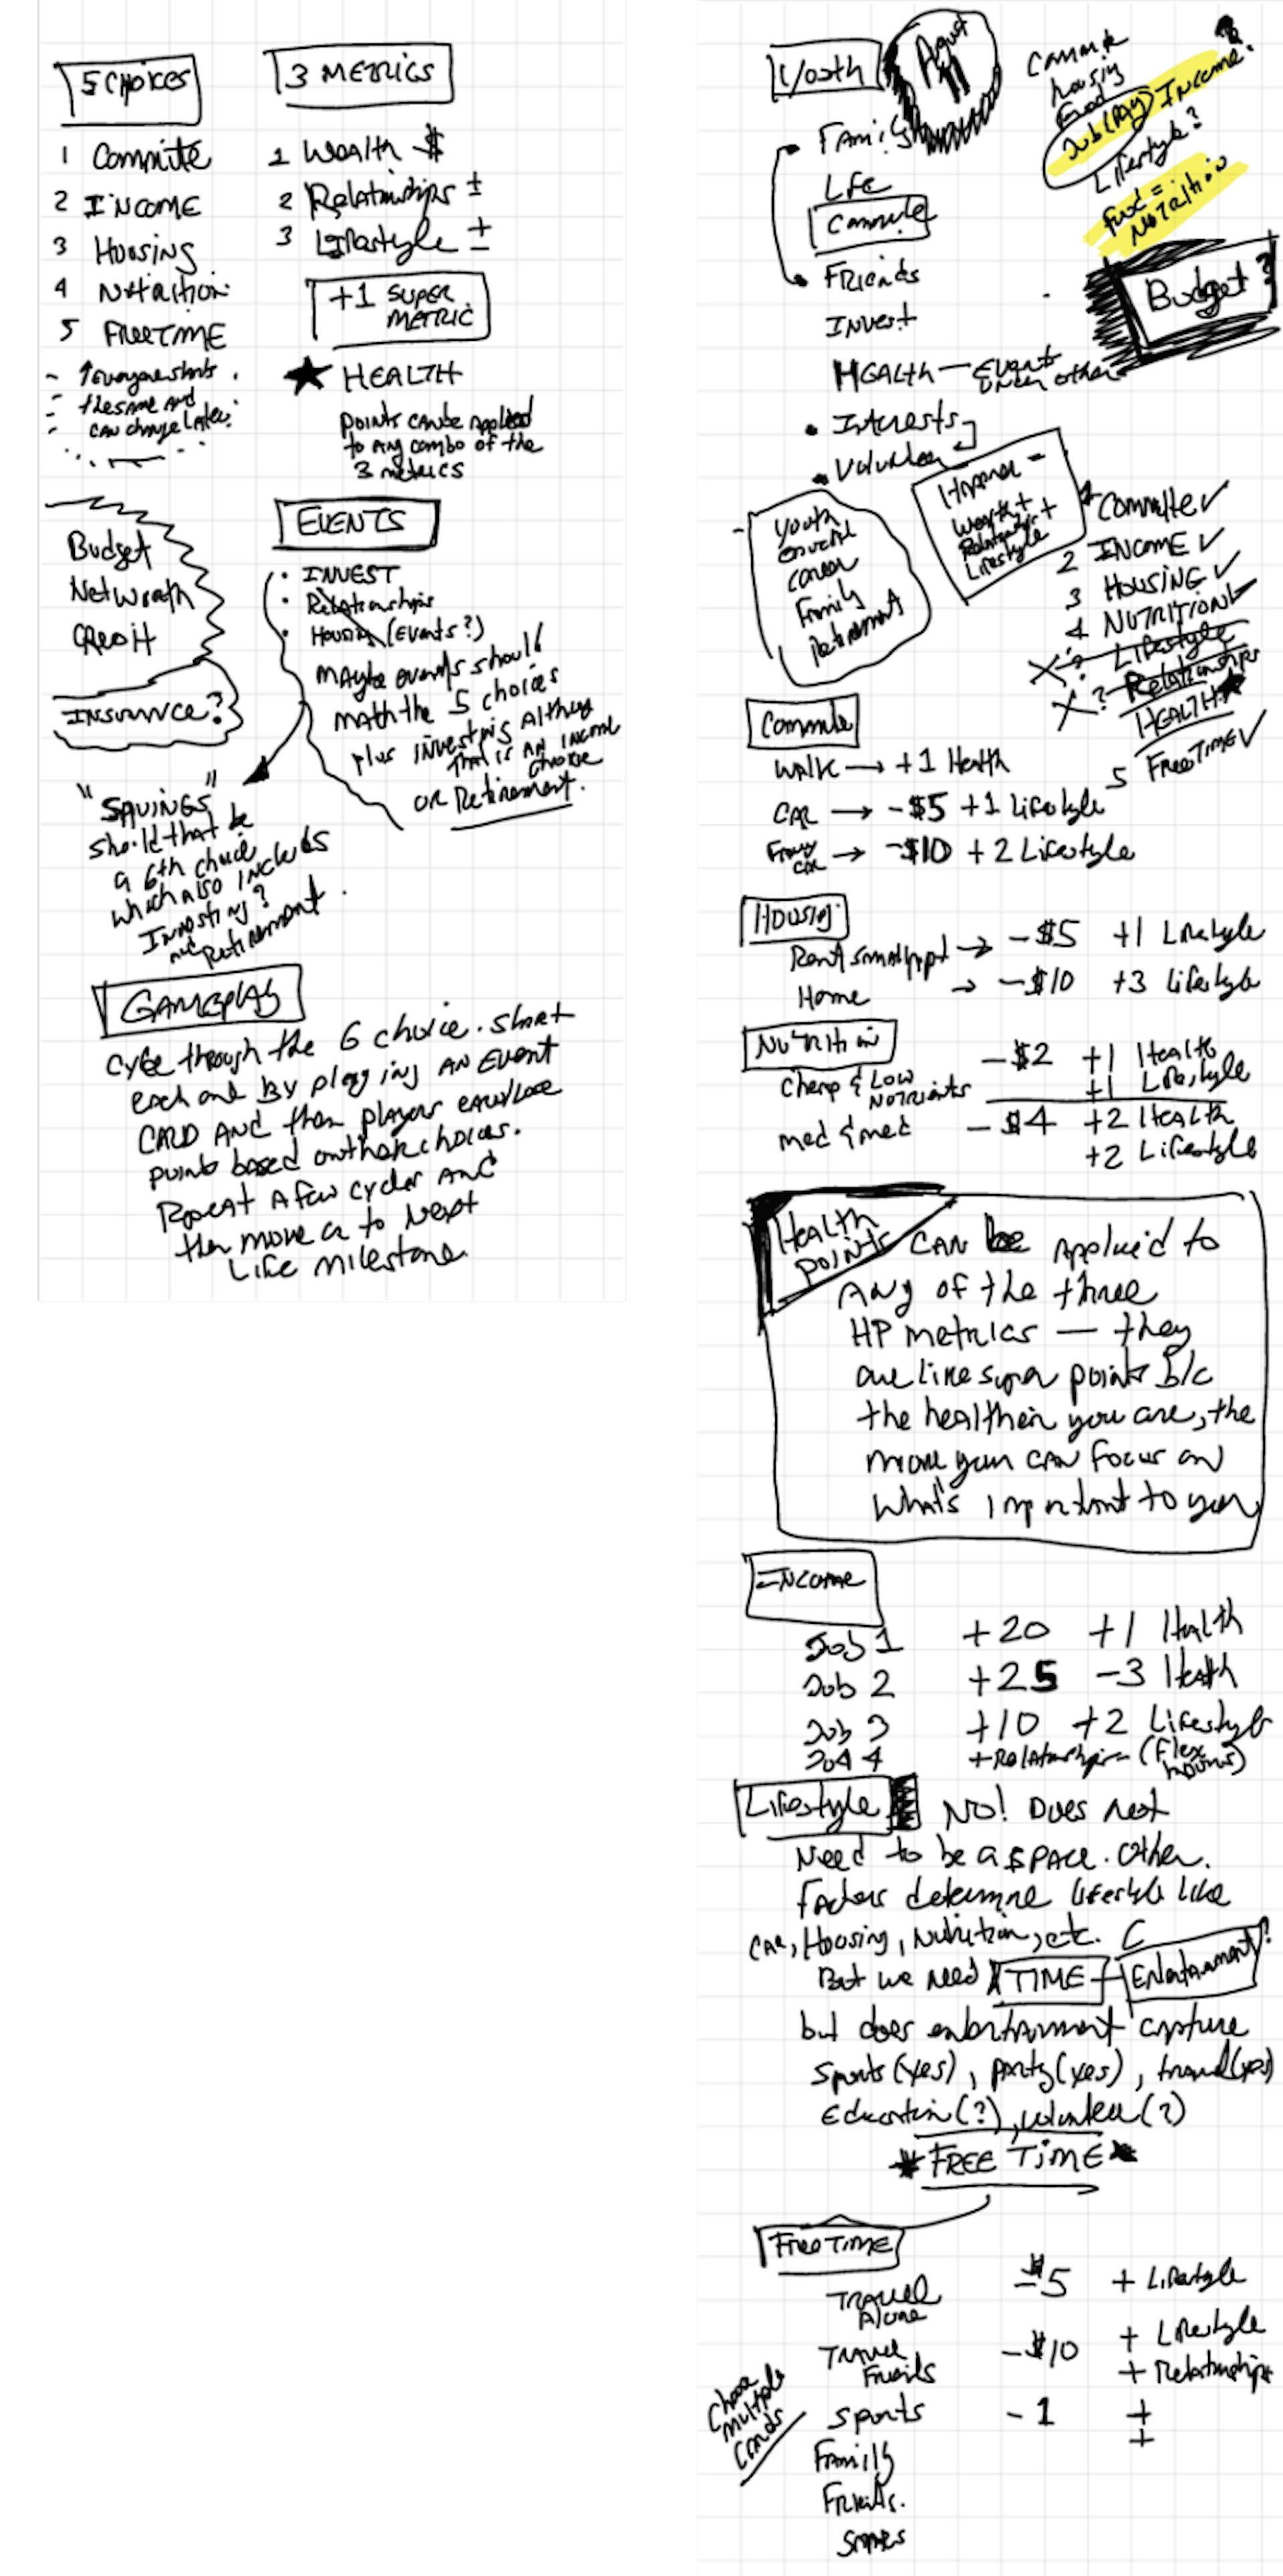 5 CHOICES
1 Commute
2 INCOME
3 Housing
4 Nutrition
5 FREETIME
- everyone starts
- the same and
- can change later.
3 METRICS
1 Wealth $
2 Relationships ±
3 Lifestyle ±
+1 SUPER
METRIC
★ HEALTH
points can be applied
to any combo of the
3 metrics
Budget
Net Worth
Credit
INSURANCE?
EVENTS
• INVEST
• Relationships
• Housing (Events?)
Maybe events should
match the 5 choices
plus investing Although
that is an income
choice
OR Retirement.
"SAVINGS"
should that be
a 6th choice
which also includes
Investing?
and Retirement.
GAMEPLAY
cycle through the 6 choice. start
each one By playing AN Event
CARD AND then players earn/lose
points based on their choices.
Repeat A few cycles AND
then move on to Next
Life milestone
Youth
• Family
Life
Commute
• Friends
Invest
HEALTH — Events
under other
• Interests
• Volunteer
Commute
housing
food
Job (Pay) Income?
Lifestyle?
food =
Nutrition
Budget?
Youth
Career
Family
Retirement
=
Wealth +
Relationships +
Lifestyle
1 Commute ✓
2 INCOME ✓
3 HOUSING ✓
4 NUTRITION ✓
X ? Lifestyle
X ? Relationships
HEALTH ★
5 FREETIME ✓
Commute
WALK → +1 Health
CAR → -$5 +1 Lifestyle
Fancy
car → -$10 +2 Lifestyle
Housing
Rent small appt → -$5 +1 Lifestyle
Home → -$10 +3 Lifestyle
Nutrition
Cheap & LOW
NUTRIENTS -$2 +1 Health
+1 Lifestyle
med & med -$4 +2 Health
+2 Lifestyle
Health
points CAN be applied to
Any of the three
HP metrics — they
are like super points b/c
the healthier you are, the
more you can focus on
what's important to you
INCOME
Job 1 +20 +1 Health
Job 2 +25 -3 Health
Job 3 +10 +2 Lifestyle
Job 4 +Relationships (Flex
hours)
Lifestyle NO! Does not
Need to be a SPACE. Other
factors determine lifestyle like
CAR, Housing, Nutrition, etc.
But we need TIME - Entertainment?
but does entertainment capture
sports (yes), party (yes), travel (yes)
Education (?), volunteer (?)
* FREE TIME *
FREE TIME
TRAVEL
Alone -$5 + Lifestyle
TRAVEL
Friends -$10 + Lifestyle
+ Relationships
Sports -1 +
+
Family
Friends.
Choose
multiple
cards